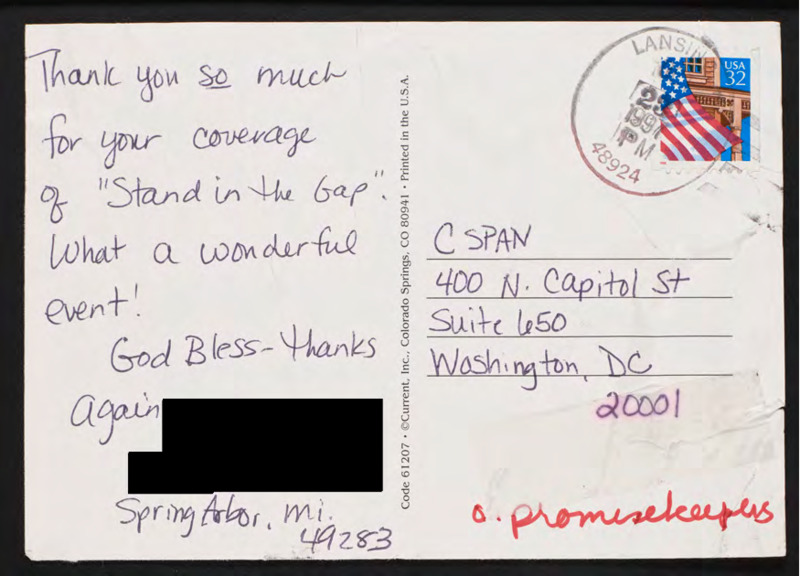 Thank you so much
for your coverage
of "Stand in the Gap".
What a wonderful
event!
God Bless - thanks
Again
Spring Arbor, mi.
49283
Code 61207 • ©Current, Inc., Colorado Springs, CO 80941 • Printed in the U.S.A.
LANSIN
23
199
PM
48924
USA
32
C SPAN
400 N. Capitol St
Suite 650
Washington, DC
20001
promisekeepers